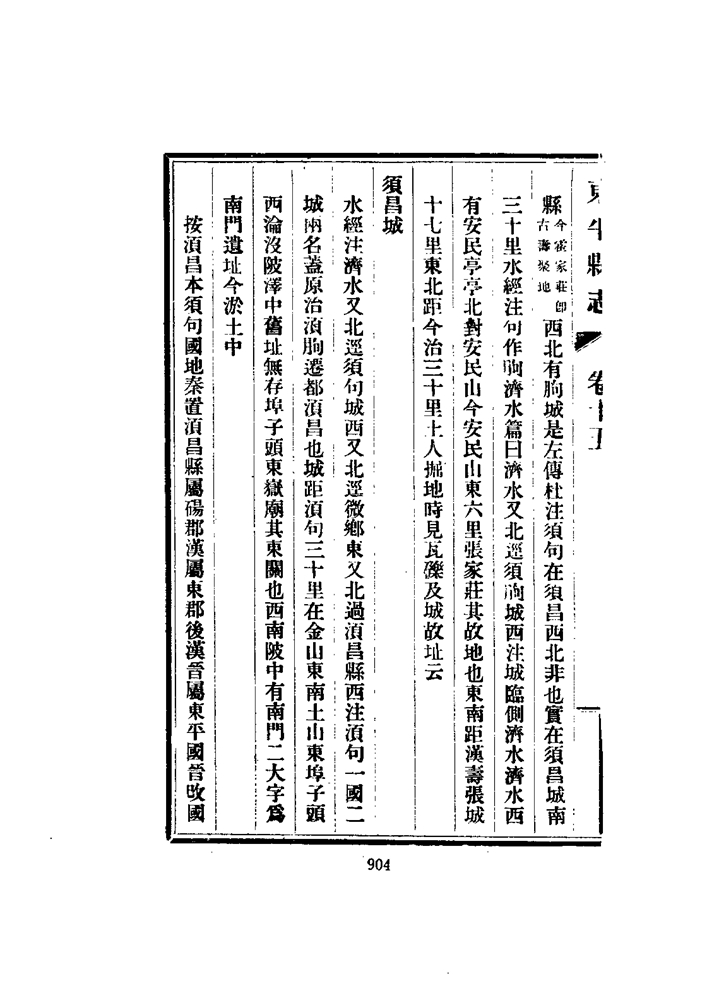 東平縣志 卷十五
縣今霍家莊卽古壽聚地西北有朐城是左傳杜注須句在須昌西北非也實在須昌城南
三十里水經注句作朐濟水篇曰濟水又北逕須朐城西注城臨側濟水濟水西
有安民亭亭北對安民山今安民山東六里張家莊其故地也東南距漢壽張城
十七里東北距今治三十里土人掘地時見瓦礫及城故址云
須昌城
水經注濟水又北逕須句城西又北逕微鄉東又北過湏昌縣西注湏句一國二
城兩名蓋原治湏朐遷都湏昌也城距湏句三十里在金山東南土山東埠子頭
西淪沒陂澤中舊址無存埠子頭東嶽廟其東關也西南陂中有南門二大字爲
南門遺址今淤土中
按湏昌本須句國地秦置湏昌縣屬碭郡漢屬東郡後漢晉屬東平國晉改國
904